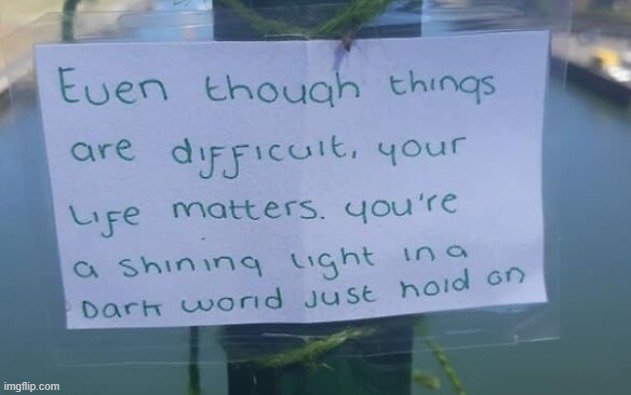 Even though things
are difficult, your
Life matters. you're
a shining light in a
Dark world Just hold on
imgflip.com